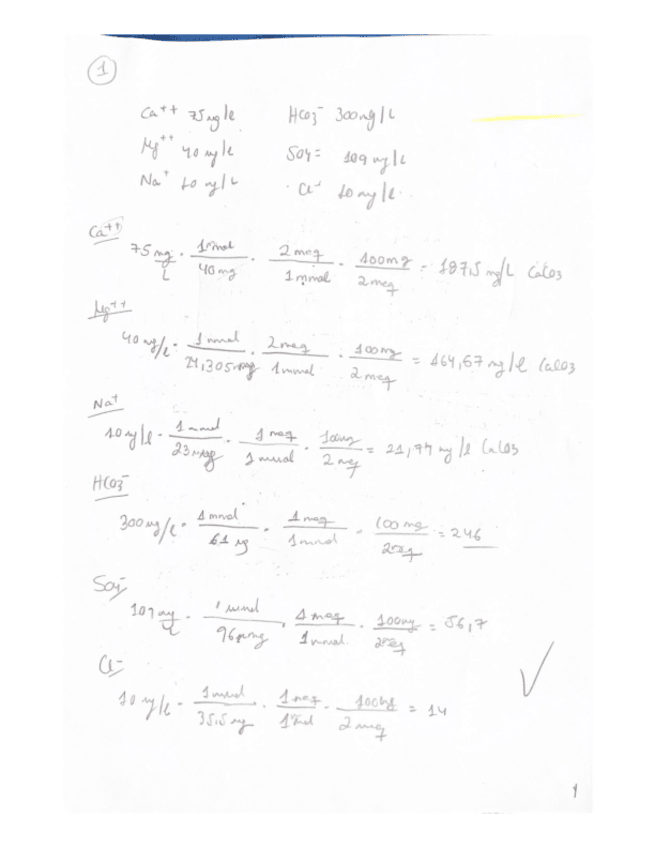 1
Ca++ 75 mg/l HCO3- 300 mg/L
Mg++ 40 mg/l SO4= 109 mg/L
Na+ 10 mg/L Cl- 10 mg/l
Ca++
75 mg/L · 1 mmol/40 mg · 2 meq/1 mmol · 100 mg/2 meq = 187,5 mg/L CaCO3
Mg++
40 mg/l · 1 mmol/24,305 mg · 2 meq/1 mmol · 100 mg/2 meq = 164,67 mg/l CaCO3
Na+
10 mg/l · 1 mmol/23 mg · 1 meq/1 mmol · 100 mg/2 meq = 21,74 mg/l CaCO3
HCO3-
300 mg/l · 1 mmol/61 mg · 1 meq/1 mmol · 100 mg/2 meq = 246
SO4-
109 mg/L · 1 mmol/96 mg · 1 meq/1 mmol · 100 mg/2 meq = 56,7
Cl-
10 mg/l · 1 mmol/35,5 mg · 1 meq/1 mmol · 100 mg/2 meq = 14
1